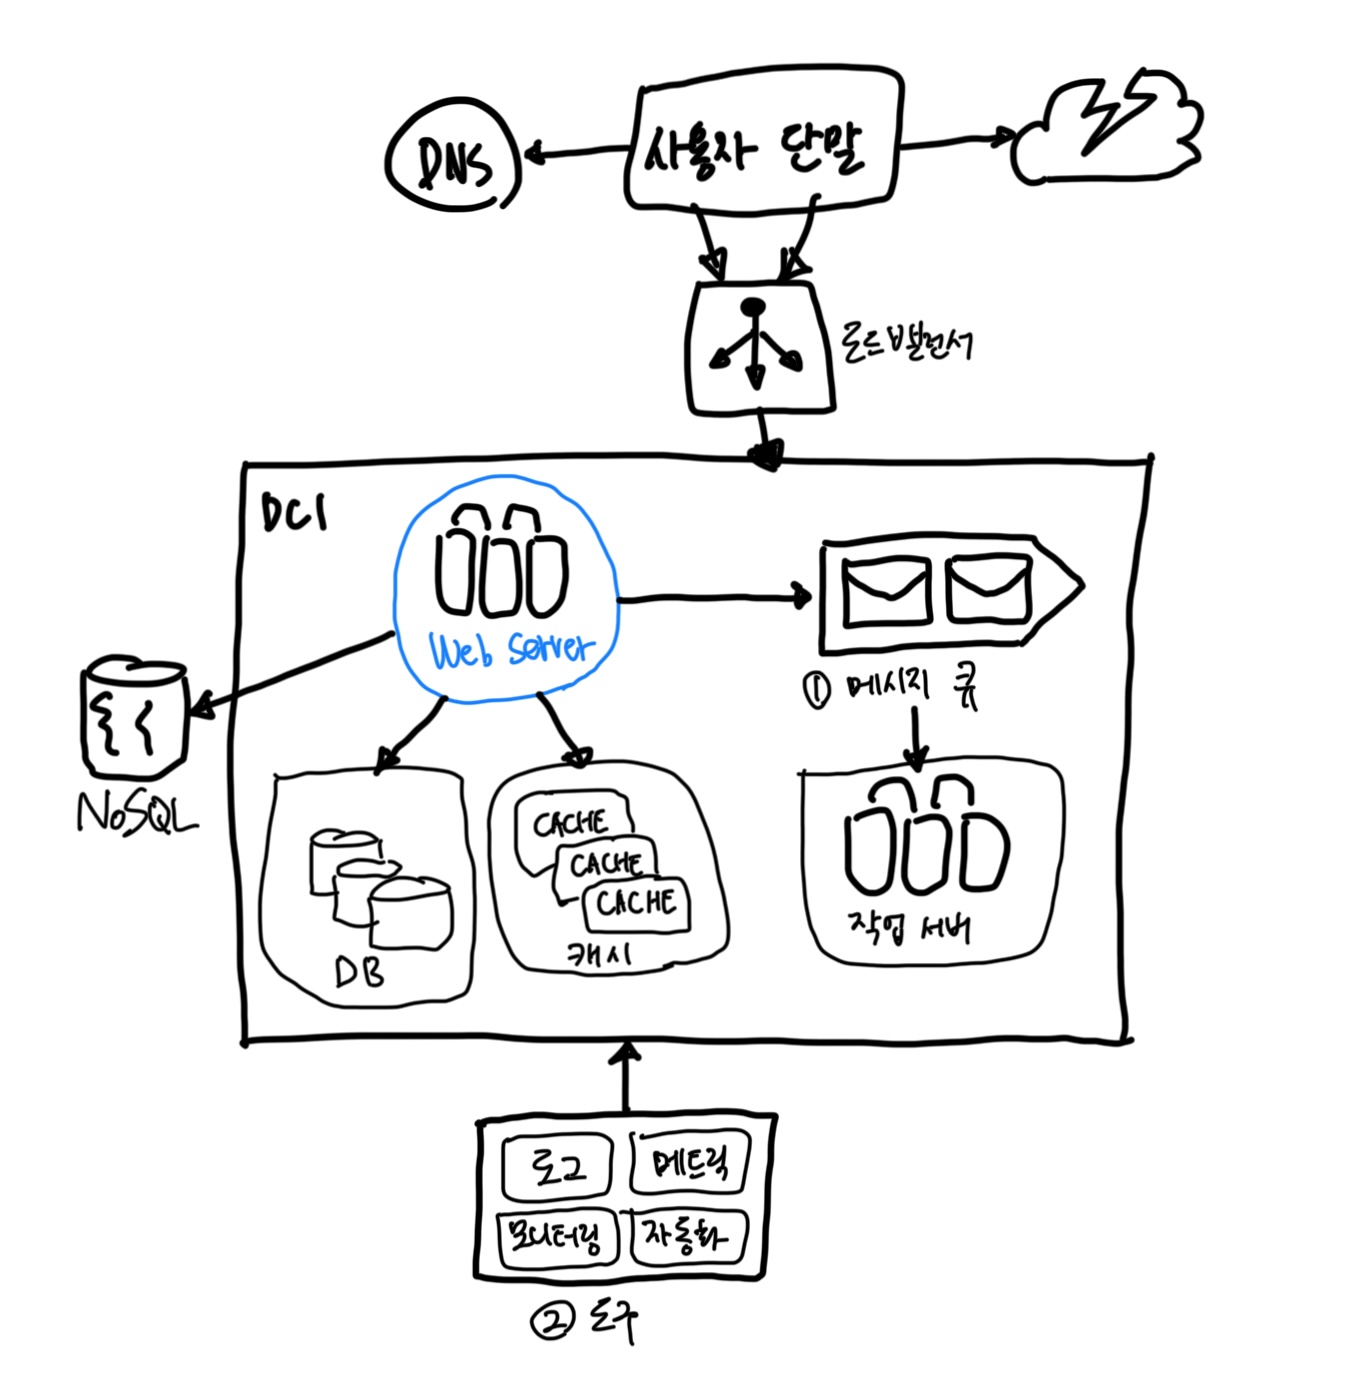 DNS
사용자 단말
로드밸런서
DC1
Web Server
① 메시지 큐
NoSQL
CACHE
CACHE
CACHE
DB
캐시
작업 서버
로그
메트릭
모니터링
자동화
② 도구